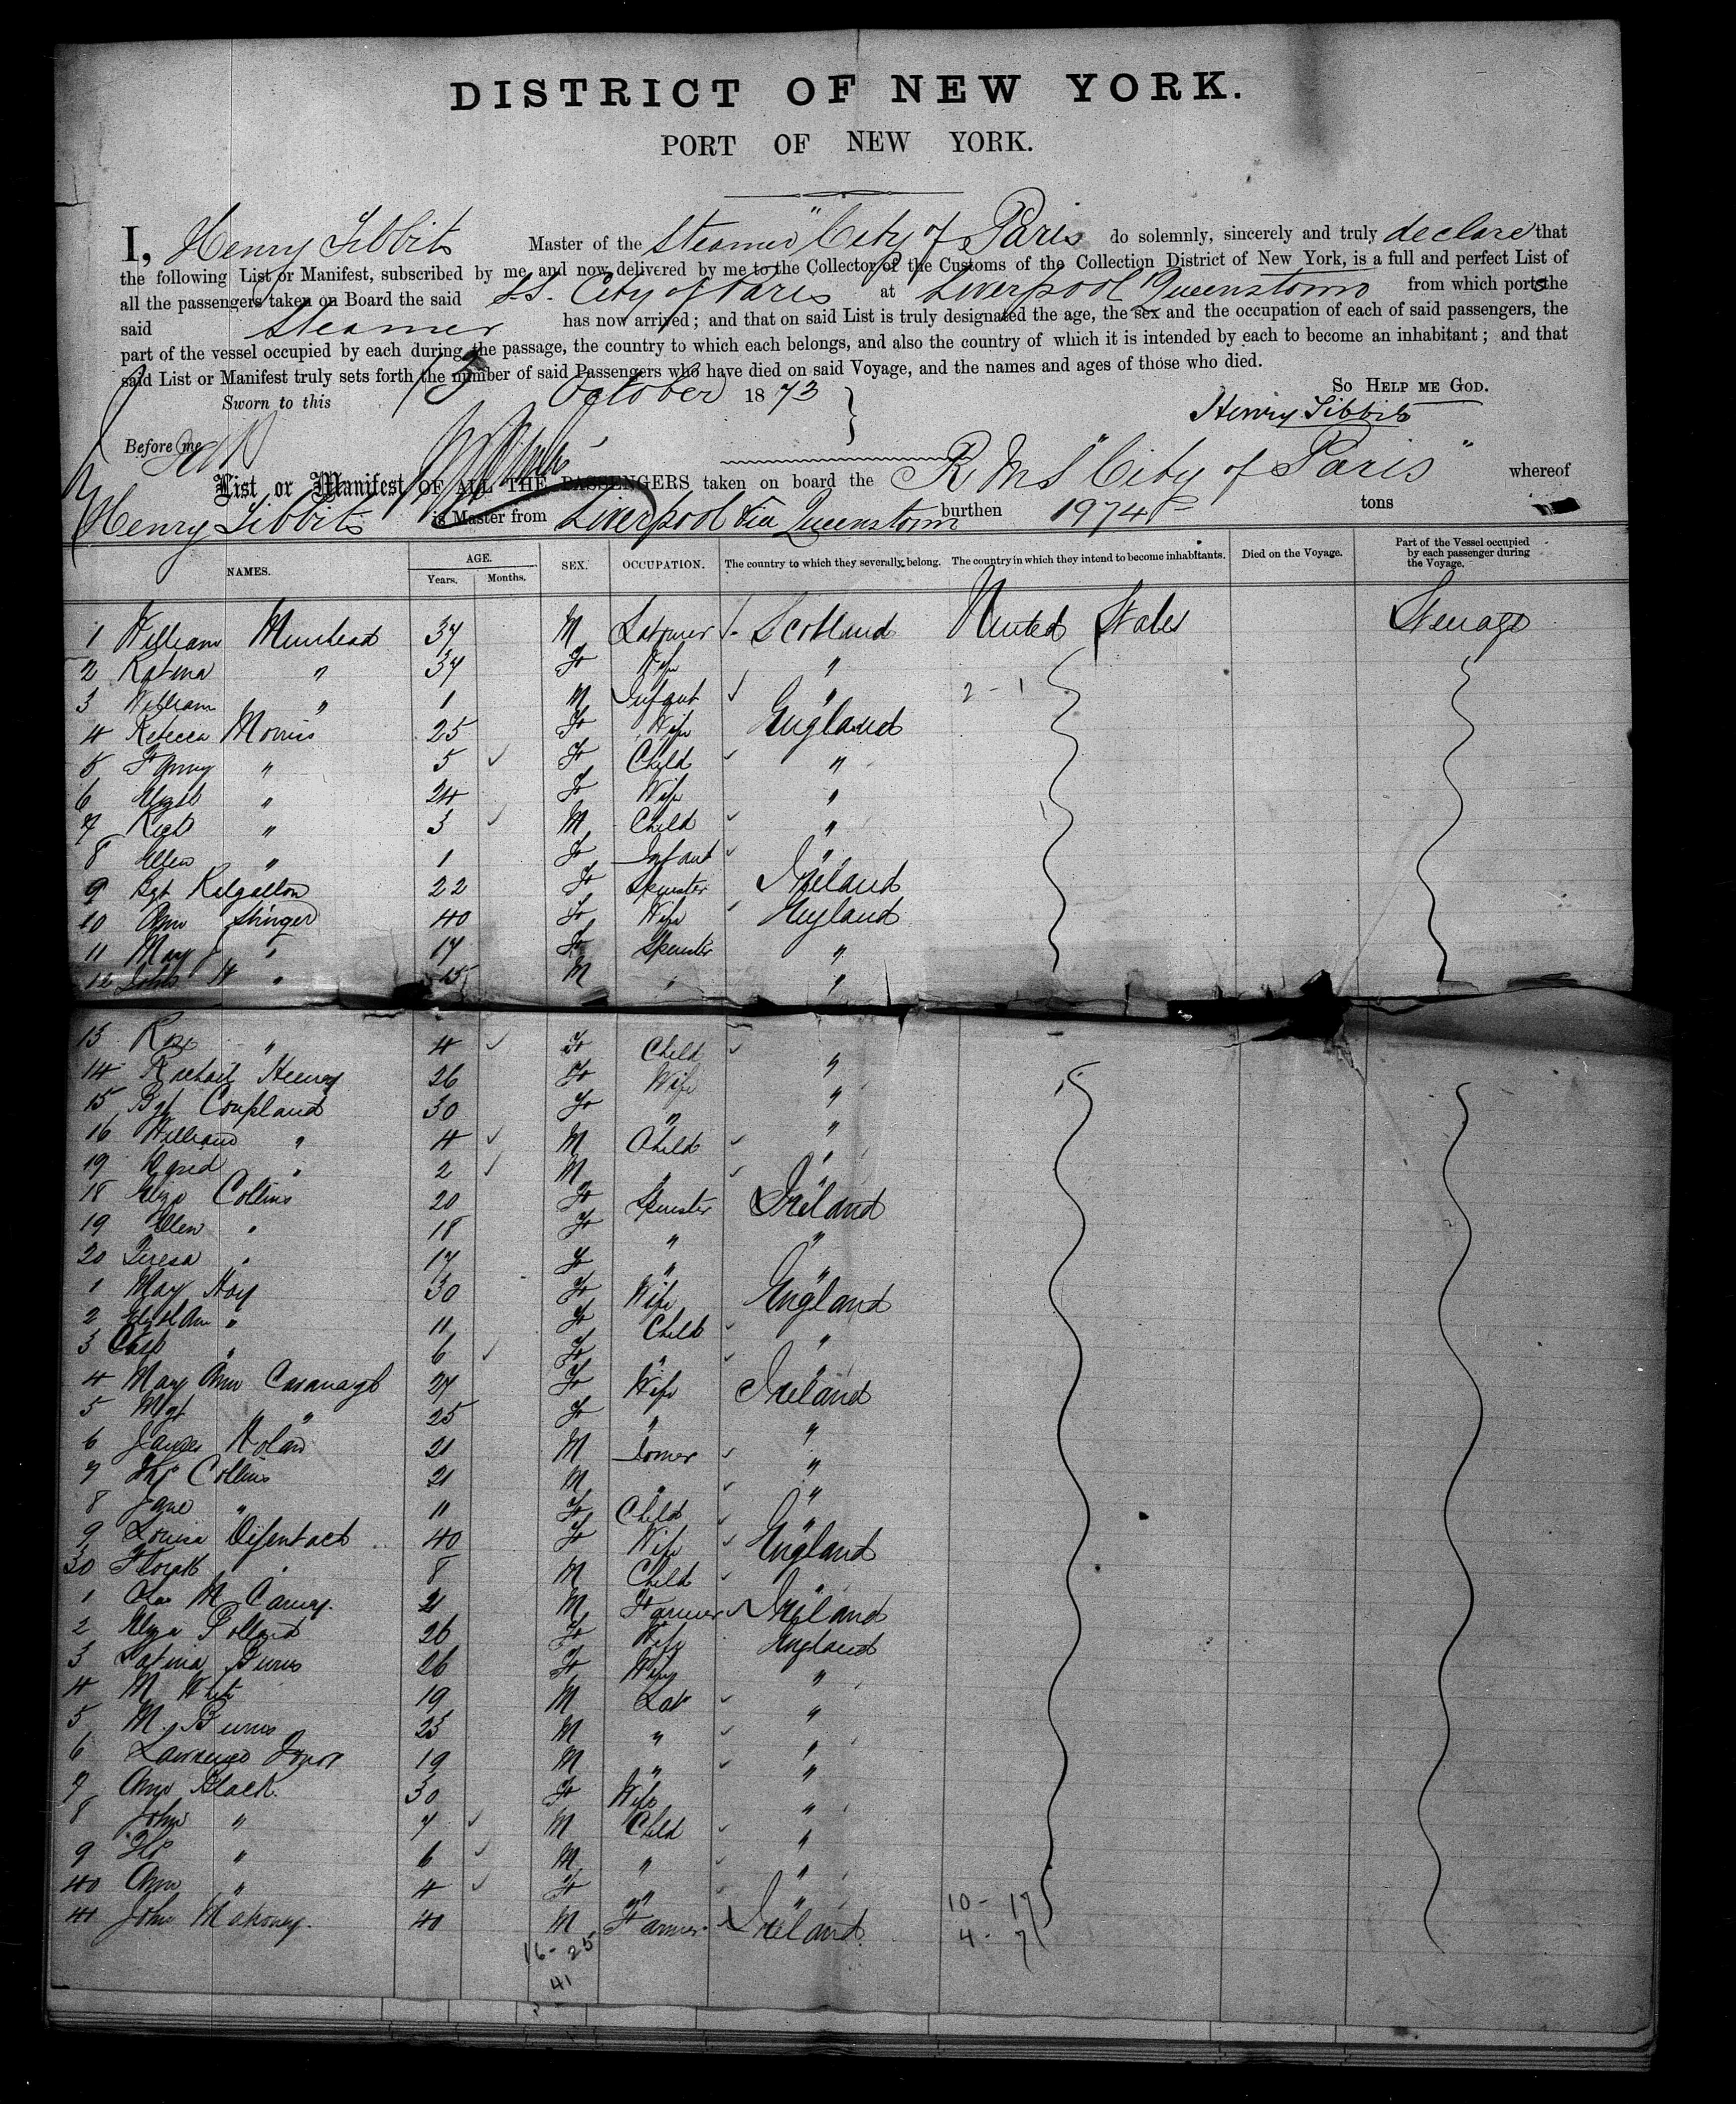 DISTRICT OF NEW YORK.
PORT OF NEW YORK.
I, Henry Tibbits Master of the Steamer "City of Paris do solemnly, sincerely and truly declare that
the following List or Manifest, subscribed by me and now delivered by me to the Collector of the Customs of the Collection District of New York, is a full and perfect List of
all the passengers taken on Board the said S.S. City of Paris at Liverpool Queenstown from which ports the
said Steamer has now arrived; and that on said List is truly designated the age, the sex and the occupation of each of said passengers, the
part of the vessel occupied by each during the passage, the country to which each belongs, and also the country of which it is intended by each to become an inhabitant; and that
said List or Manifest truly sets forth the number of said Passengers who have died on said Voyage, and the names and ages of those who died.
So Help me God.
Sworn to this 13 October 1873
Henry Tibbits
Before me
List or Manifest OF ALL THE PASSENGERS taken on board the R M S "City of Paris" whereof
Henry Tibbits is Master from Liverpool via Queenstown burthen 1974 tons
NAMES. AGE. Years. Months. SEX. OCCUPATION. The country to which they severally belong. The country in which they intend to become inhabitants. Died on the Voyage. Part of the Vessel occupied by each passenger during the Voyage.
1 William Muirhead 37 M Labourer Scotland United States Steerage
2 Katina " 37 F Wife "
3 William " 1 M Infant " 2 - 1
4 Rebecca Morris 25 F Wife England
5 Fanny " 5 F Child "
6 Elizth " 24 F Wife "
7 Richd " 3 M Child "
8 Ellen " 1 F Infant "
9 Bgt Kilgallon 22 F Spinster Ireland
10 Ann Stringer 40 F Wife England
11 Mary J " 17 F Spinster "
12 John W " 15 M " "
13 " 4 F Child "
14 Rachail Henry 26 F Wife "
15 Bgt Coupland 30 F " "
16 William " 4 M Child "
17 David " 2 M " "
18 Eliza Collins 20 F Spinster Ireland
19 Ellen " 18 F " "
20 Teresa " 17 F " "
1 Mary Hoy 30 F Wife England
2 Elizth Ann " 11 F Child "
3 " 6 F " "
4 Mary Ann Cavanagh 27 F Wife Ireland
5 Mgt " 25 F " "
6 James Nolan 21 M "
7 Ths Collins 21 M " "
8 Jane " 11 F Child "
9 Louisa 40 F Wife England
30 " 8 M Child "
1 21 M Farmer Ireland
2 Eliza Pollard 26 F Wife England
3 Burns 26 F Wife "
4 M White 19 M Lab "
5 M. Burns 23 M " "
6 Lawrence 19 M " "
7 Ann Black 30 F Wife "
8 John " 7 M Child "
9 Ths " 6 M " "
40 Ann " 4 F " "
41 John Mahoney. 40 M Farmer Ireland
10 - 17
4 - 7
16 - 25
41